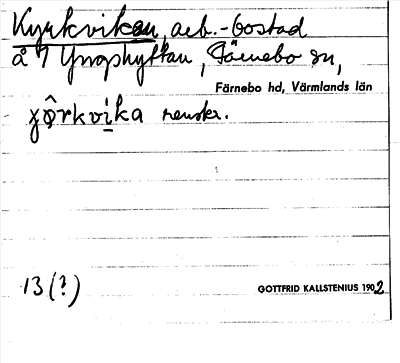 Kyrkvikan, arb.-bostad
å 7 Yngshyttan, Färnebo sn,
Färnebo hd, Värmlands län
rensкr.
13 (?)
GOTTFRID KALLSTENIUS 1902